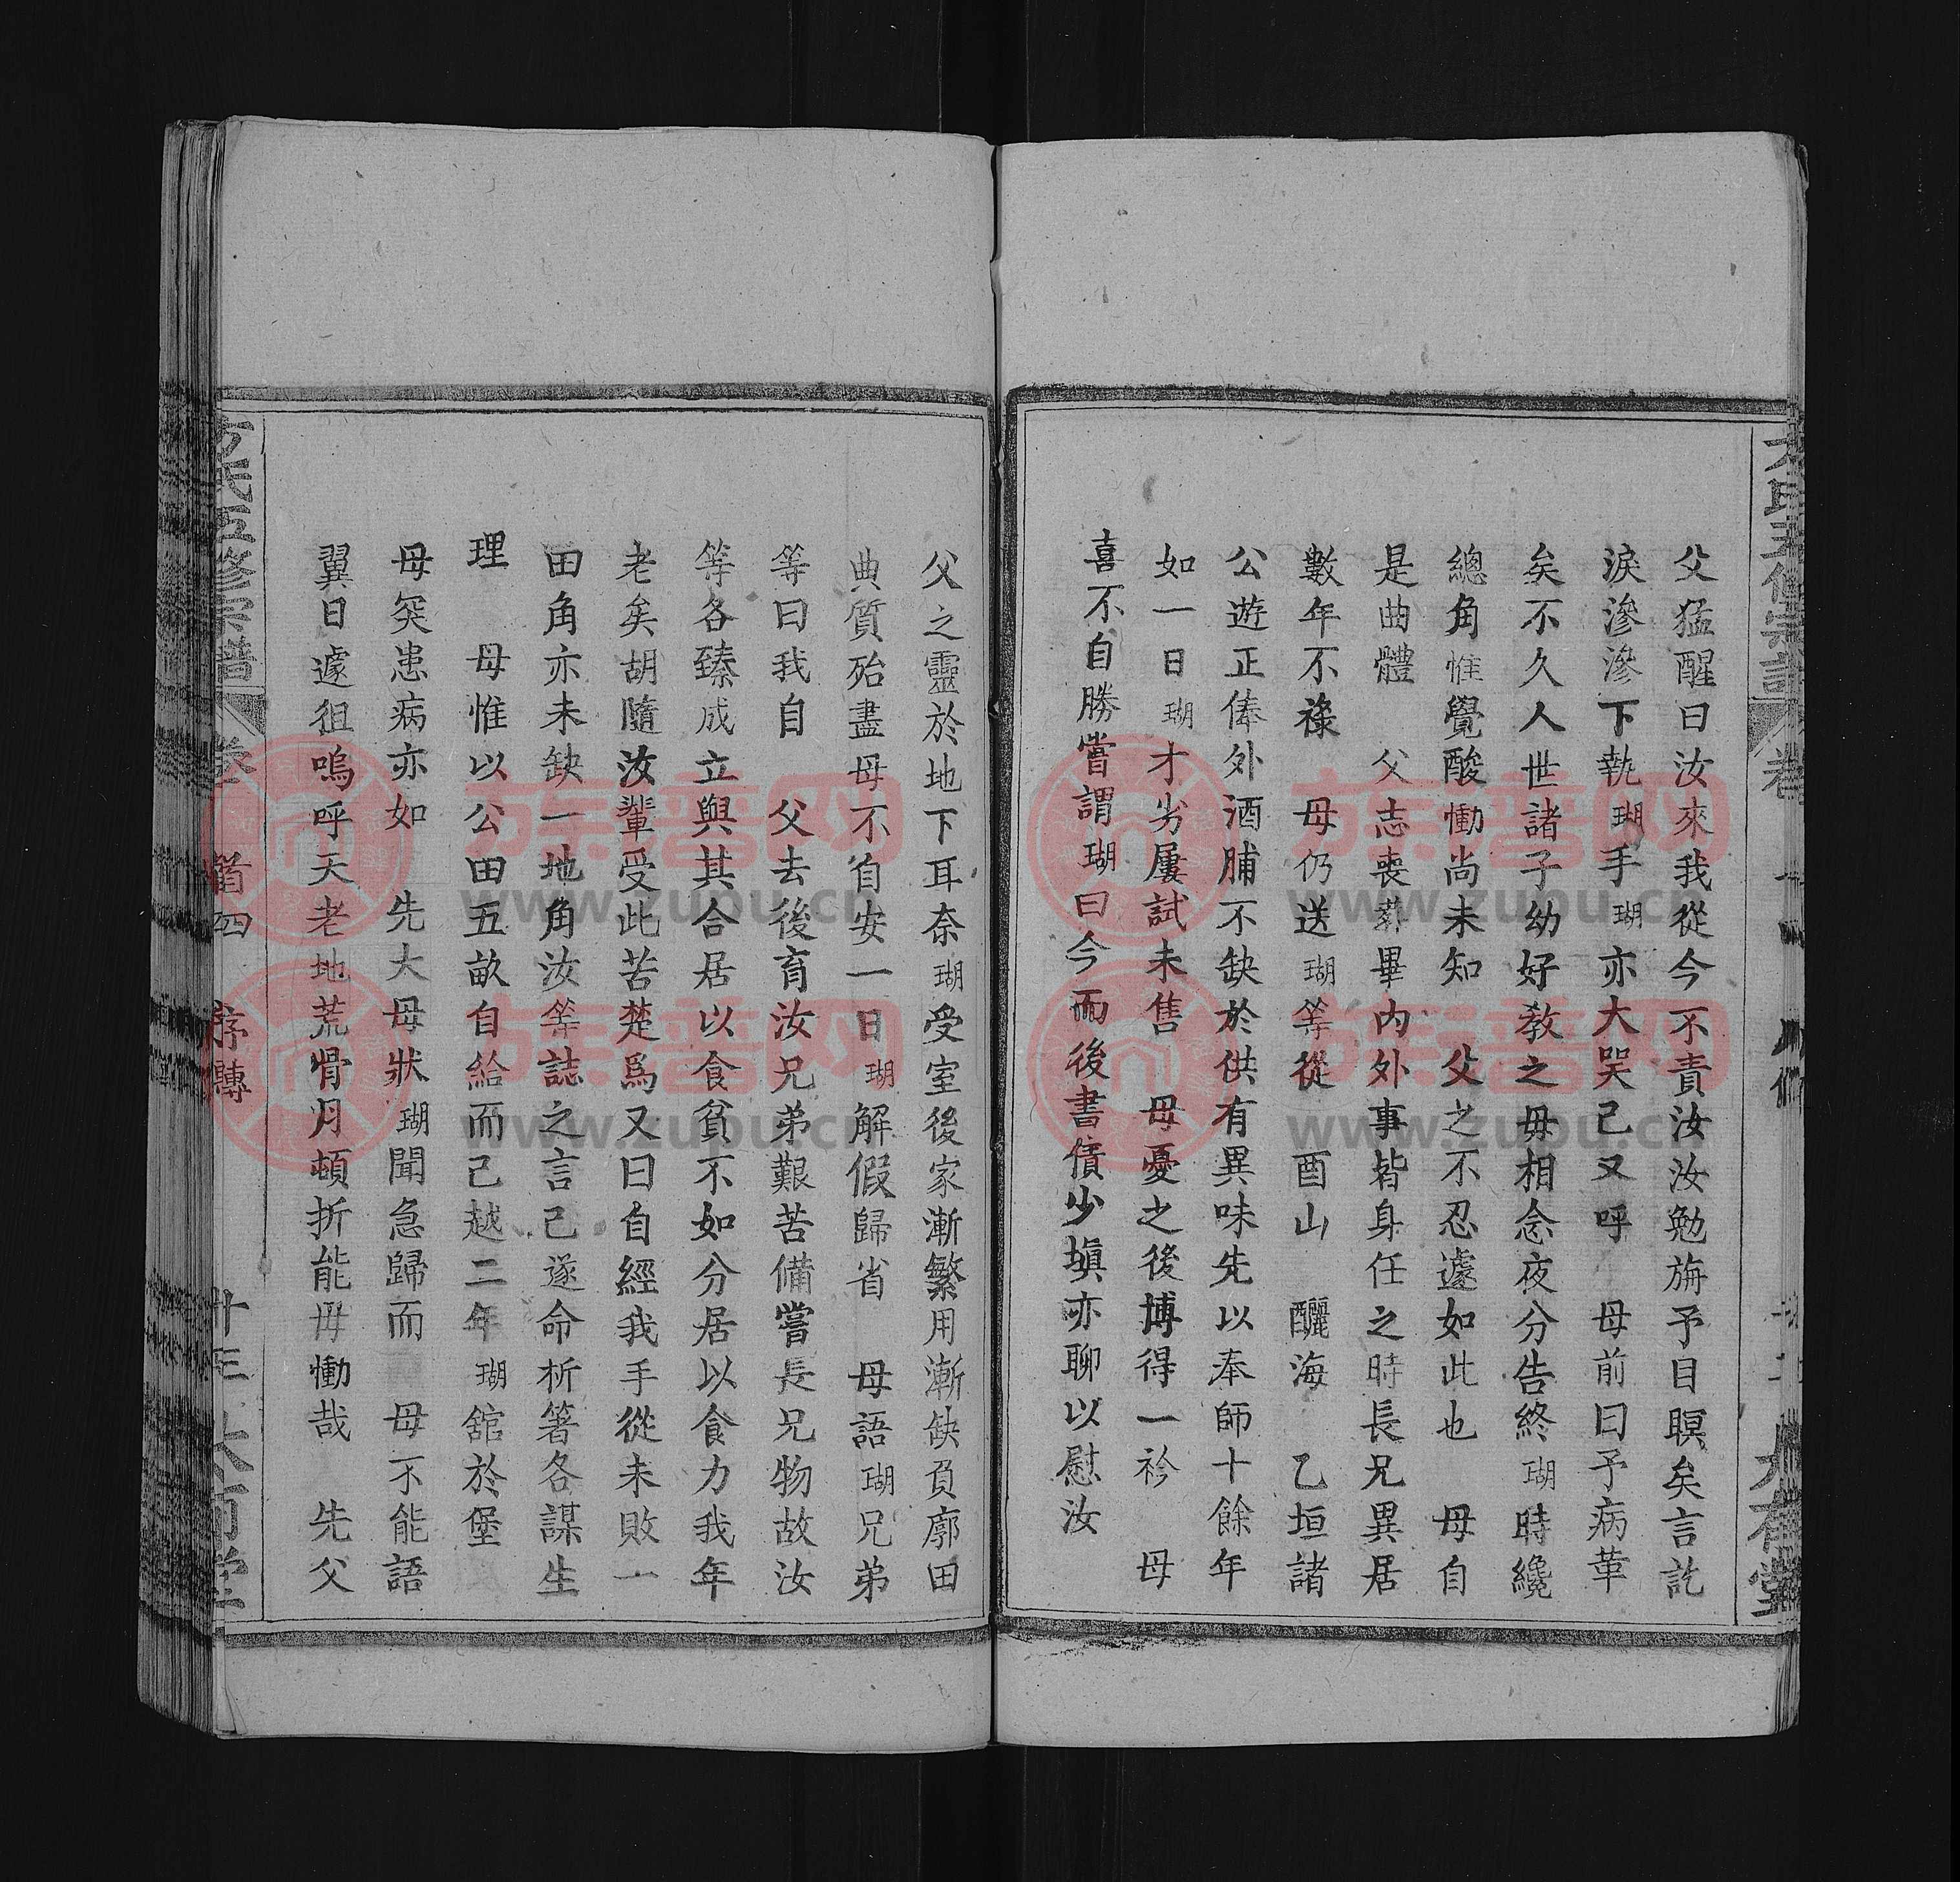 父猛醒曰汝來我從今不責汝汝勉旃予目瞑矣言訖
淚滲滲下執瑚手瑚亦大哭已又呼　母前曰予病革
矣不久人世諸子幼好教之毋相念夜分告終瑚時纔
總角惟覺酸慟尚未知　父之不忍遽如此也　母自
是曲體　父志喪葬畢內外事皆身任之時長兄異居
數年不祿　母仍送瑚等從　酉山　釃海　乙垣諸
公遊正俸外酒脯不缺於供有異味先以奉師十餘年
如一日瑚才劣屢試未售　母憂之後博得一衿　母
喜不自勝嘗謂瑚曰今而後書債少塡亦聊以慰汝
父之靈於地下耳奈瑚受室後家漸繁用漸缺負廓田
典質殆盡母不自安一日瑚解假歸省　母語瑚兄弟
等曰我自　父去後育汝兄弟艱苦備嘗長兄物故汝
等各臻成立與其合居以食貧不如分居以食力我年
老矣胡隨汝輩受此苦楚爲又曰自經我手從未敗一
田角亦未缺一地角汝等誌之言已遂命析箸各謀生
理　母惟以公田五畝自給而已越二年瑚舘於堡
母突患病亦如　先大母狀瑚聞急歸而　母不能語
翼日遽徂嗚呼天老地荒骨月頓折能毋慟哉　先父
氏五修宗譜　卷首四　序傳　廿三　大有堂
www.zupu.cn
族譜网